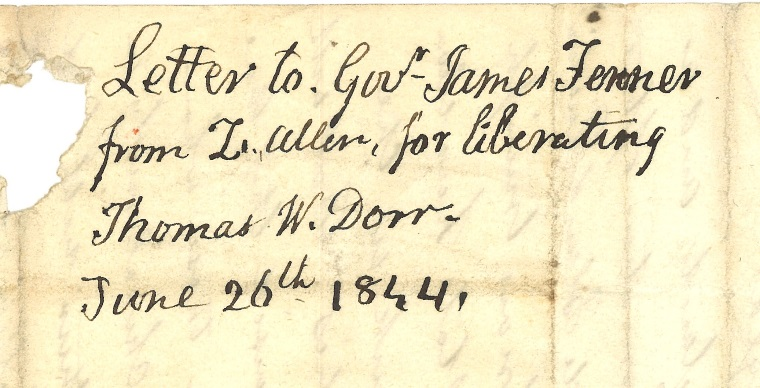 Letter to. Govr James Fenner
from Z. Allen, for liberating
Thomas W. Dorr-
June 26th 1844.